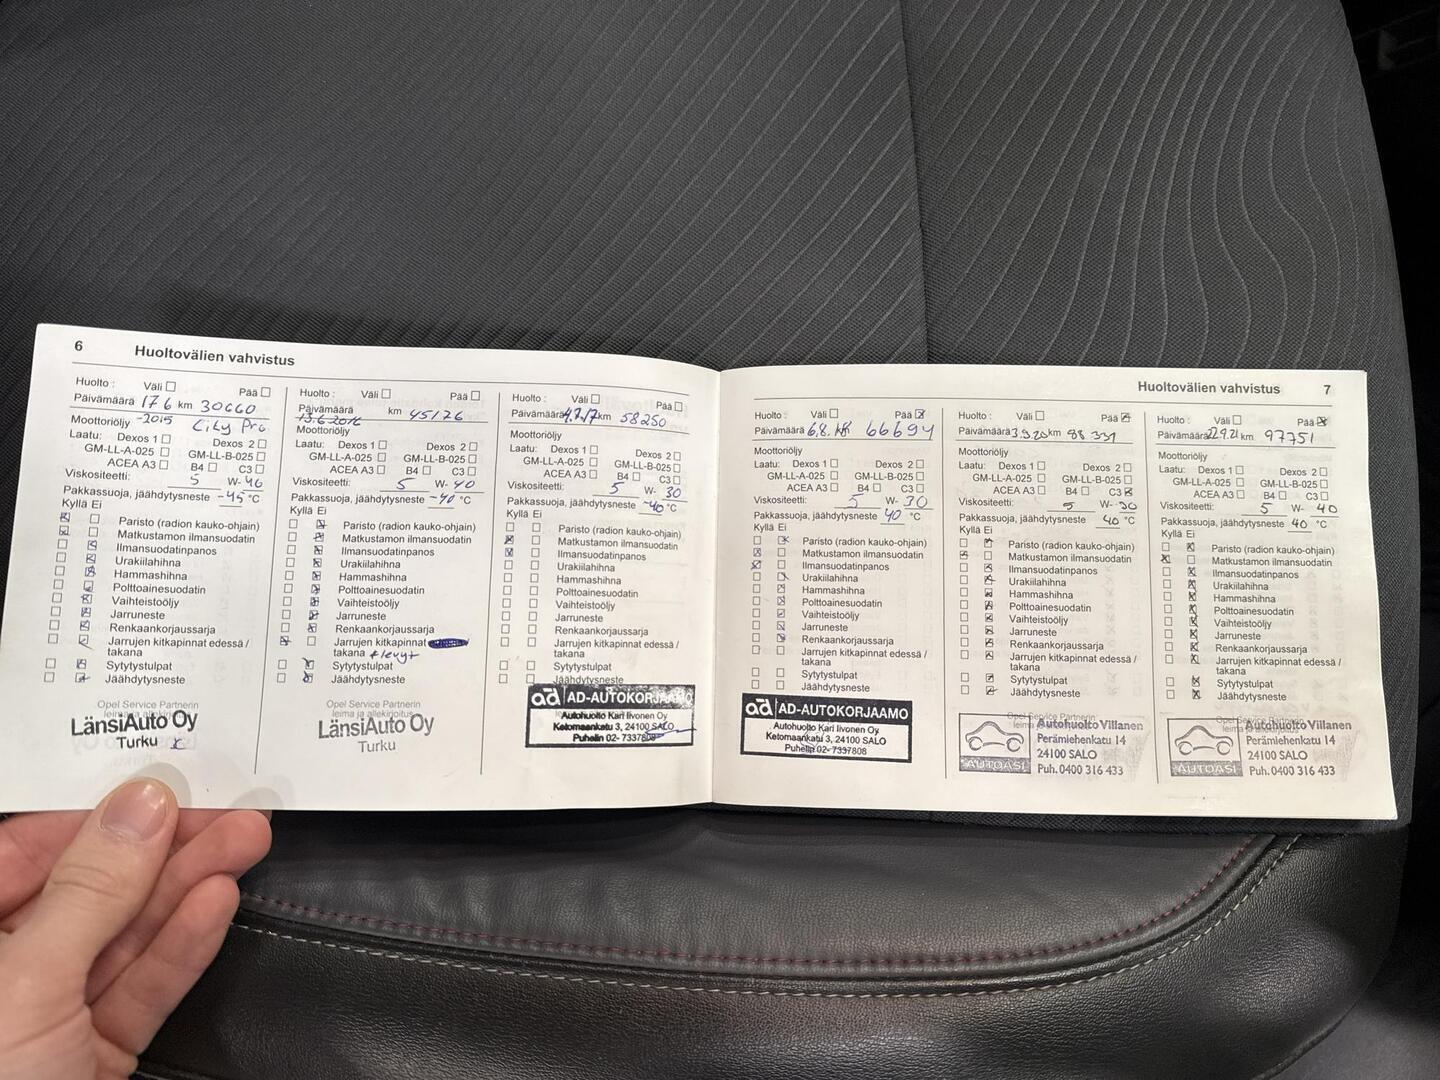 6 Huoltovälien vahvistus
Huolto : Väli Pää
Päivämäärä 17.6 km 30660
-2015 City Pro
Moottoriöljy
Laatu: Dexos 1 Dexos 2
GM-LL-A-025 GM-LL-B-025
ACEA A3 B4 C3
Viskositeetti: 5 W- 40
Pakkassuoja, jäähdytysneste -45 °C
Kyllä Ei
Paristo (radion kauko-ohjain)
Matkustamon ilmansuodatin
Ilmansuodatinpanos
Urakiilahihna
Hammashihna
Polttoainesuodatin
Vaihteistoöljy
Jarruneste
Renkaankorjaussarja
Jarrujen kitkapinnat edessä /
takana
Sytytystulpat
Jäähdytysneste
Opel Service Partnerin
leima ja allekirjoitus
LänsiAuto Oy
Turku
Huolto : Väli Pää
Päivämäärä km 45126
13.6.2016
Moottoriöljy
Laatu: Dexos 1 Dexos 2
GM-LL-A-025 GM-LL-B-025
ACEA A3 B4 C3
Viskositeetti: 5 W- 40
Pakkassuoja, jäähdytysneste -40 °C
Kyllä Ei
Paristo (radion kauko-ohjain)
Matkustamon ilmansuodatin
Ilmansuodatinpanos
Urakiilahihna
Hammashihna
Polttoainesuodatin
Vaihteistoöljy
Jarruneste
Renkaankorjaussarja
Jarrujen kitkapinnat
takana + levyt
Sytytystulpat
Jäähdytysneste
Opel Service Partnerin
leima ja allekirjoitus
LänsiAuto Oy
Turku
Huolto : Väli Pää
Päivämäärä km 58250
Moottoriöljy
Laatu: Dexos 1 Dexos 2
GM-LL-A-025 GM-LL-B-025
ACEA A3 B4 C3
Viskositeetti: 5 W- 30
Pakkassuoja, jäähdytysneste -40 °C
Kyllä Ei
Paristo (radion kauko-ohjain)
Matkustamon ilmansuodatin
Ilmansuodatinpanos
Urakiilahihna
Hammashihna
Polttoainesuodatin
Vaihteistoöljy
Jarruneste
Renkaankorjaussarja
Jarrujen kitkapinnat edessä /
takana
Sytytystulpat
Jäähdytysneste
ad AD-AUTOKORJAAMO
Autohuolto Kari Iivonen Oy
Ketomaankatu 3, 24100 SALO
Puhelin 02- 7337808
Huoltovälien vahvistus 7
Huolto : Väli Pää
Päivämäärä 6.8. km 66694
Moottoriöljy
Laatu: Dexos 1 Dexos 2
GM-LL-A-025 GM-LL-B-025
ACEA A3 B4 C3
Viskositeetti: 5 W- 30
Pakkassuoja, jäähdytysneste 40 °C
Kyllä Ei
Paristo (radion kauko-ohjain)
Matkustamon ilmansuodatin
Ilmansuodatinpanos
Urakiilahihna
Hammashihna
Polttoainesuodatin
Vaihteistoöljy
Jarruneste
Renkaankorjaussarja
Jarrujen kitkapinnat edessä /
takana
Sytytystulpat
Jäähdytysneste
ad AD-AUTOKORJAAMO
Autohuolto Kari Iivonen Oy
Ketomaankatu 3, 24100 SALO
Puhelin 02- 7337808
Huolto : Väli Pää
Päivämäärä 3.9.20 km 88 331
Moottoriöljy
Laatu: Dexos 1 Dexos 2
GM-LL-A-025 GM-LL-B-025
ACEA A3 B4 C3
Viskositeetti: 5 W- 30
Pakkassuoja, jäähdytysneste 40 °C
Kyllä Ei
Paristo (radion kauko-ohjain)
Matkustamon ilmansuodatin
Ilmansuodatinpanos
Urakiilahihna
Hammashihna
Polttoainesuodatin
Vaihteistoöljy
Jarruneste
Renkaankorjaussarja
Jarrujen kitkapinnat edessä /
takana
Sytytystulpat
Jäähdytysneste
Opel Service Partnerin
Autohuolto Villanen
Perämiehenkatu 14
24100 SALO
AUTOASI Puh. 0400 316 433
Huolto : Väli Pää
Päivämäärä 22.9.21 km 97751
Moottoriöljy
Laatu: Dexos 1 Dexos 2
GM-LL-A-025 GM-LL-B-025
ACEA A3 B4 C3
Viskositeetti: 5 W- 40
Pakkassuoja, jäähdytysneste 40 °C
Kyllä Ei
Paristo (radion kauko-ohjain)
Matkustamon ilmansuodatin
Ilmansuodatinpanos
Urakiilahihna
Hammashihna
Polttoainesuodatin
Vaihteistoöljy
Jarruneste
Renkaankorjaussarja
Jarrujen kitkapinnat edessä /
takana
Sytytystulpat
Jäähdytysneste
Autohuolto Villanen
Perämiehenkatu 14
24100 SALO
AUTOASI Puh. 0400 316 433